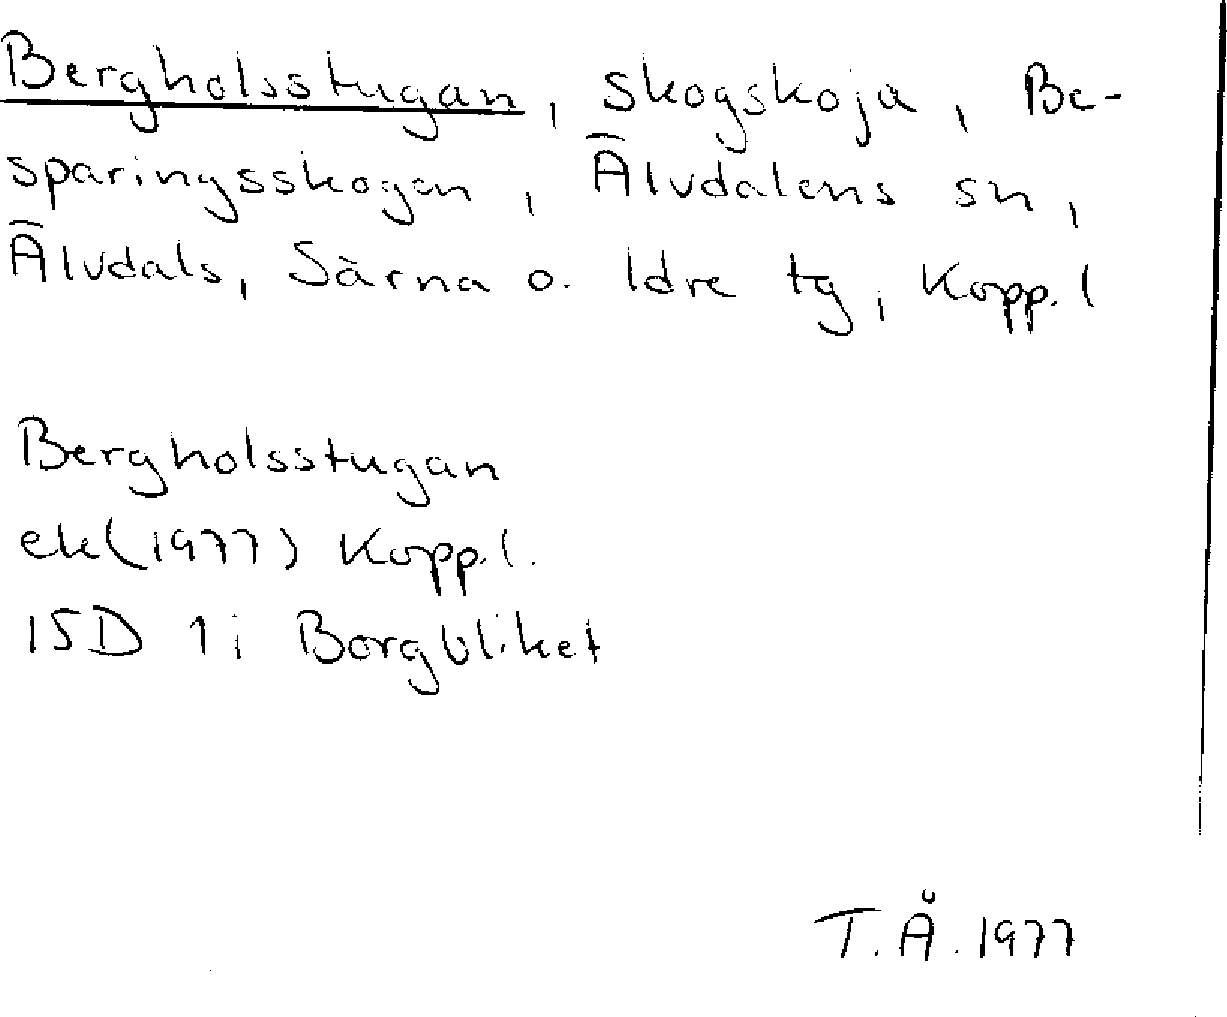 Bergholsstugan, skogskoja, Be-
sparingsskogen, Älvdalens sn,
Älvdals, Särna o. Idre tg, Kopp.l
Bergholsstugan
ek(1977) Kopp.l.
15D 1i Borgbliket
T.Å. 1977